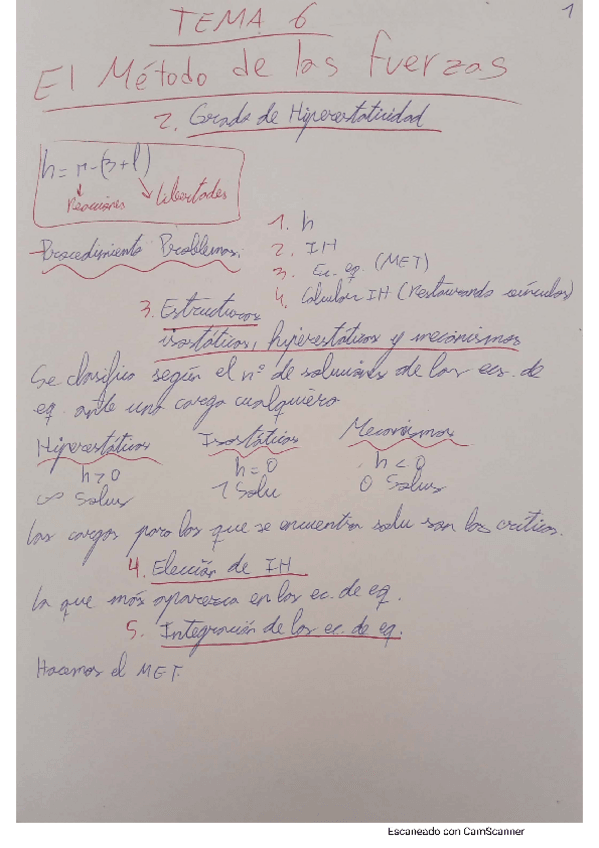 1
TEMA 6
El Método de las fuerzas
2. Grado de Hiperestaticidad
h = r - (3 + l)
Reacciones
Libertades
Procedimiento Problemas:
1. h
2. IH
3. Ec. eq. (MET)
4. Calcular IH (restaurando vínculos)
3. Estructuras
isostáticas, hiperestáticas y mecanismos
Se clasifica según el nº de soluciones de las ecs. de
eq. ante una carga cualquiera
Hiperestáticas Isostáticas Mecanismos
h > 0 h = 0 h < 0
∞ Solus 1 Solu 0 Solus
Las cargas para las que se encuentra solu son las críticas.
4. Elección de IH
La que más aparezca en las ec. de eq.
5. Integración de las ec. de eq.
Hacemos el MET.
Escaneado con CamScanner